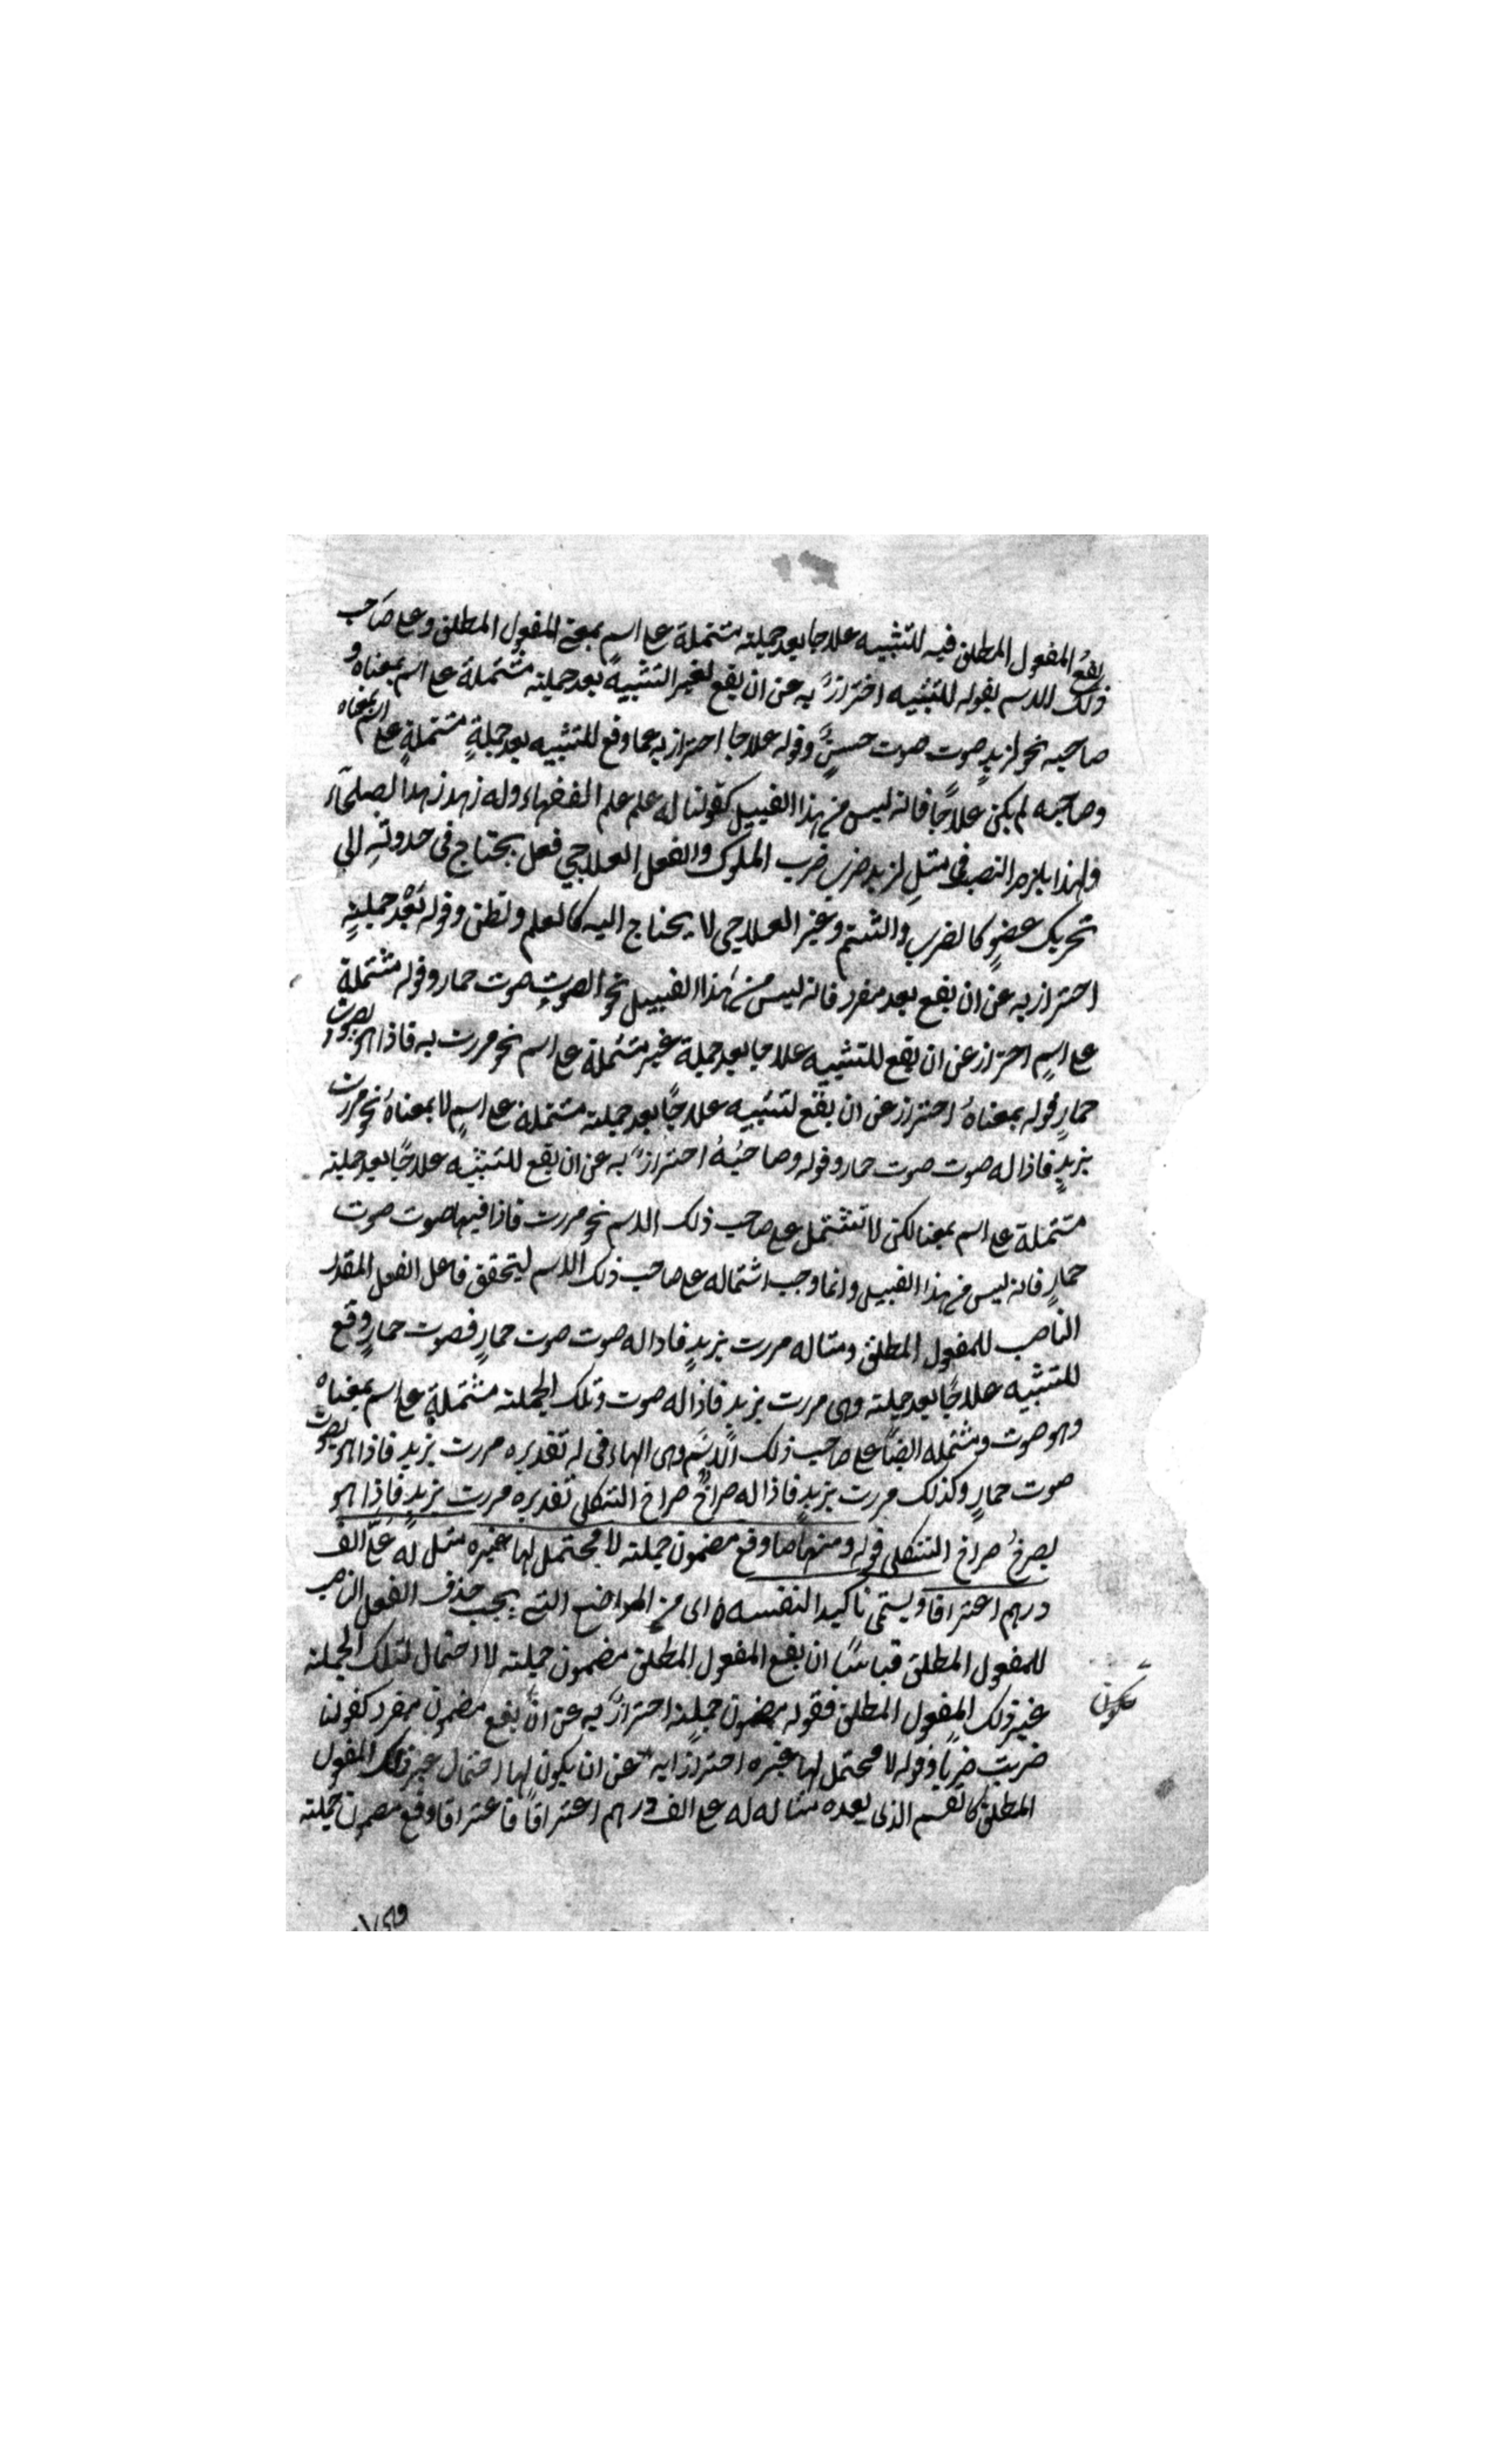 يقع المفعول المطلق فيه للتشبيه علاجا بعد جملته مشتملة على اسم بمعنى المفعول المطلق وعلى صاحب
ذلك الاسم بقوله للتشبيه احترازٌ به عن ان يقع لغير التشبيه بعد جملته مشتملة على اسم بمعناه و
صاحبه نحو لزيدٍ صوت صوت حسنٌ وقوله علاجا احتراز به عما وقع للتشبيه بعد جملةٍ مشتملةٍ على اسم بمعناه
وصاحبه لم يكن علاجًا فانه ليس من هذا القبيل كقولنا له علم علم الفقهاء وله زهد زهد الصلحاء
فلهذا يلزم النصب في مثل لزيد ضرب ضرب الملوك والفعل العلاجي فعل يحتاج في حدوثه الى
تحريك عضوٍ كالضرب والشتم وغير العلاجي لا يحتاج اليه كالعلم والظن وقوله بَعْد جملتهٍ
احتراز به عن ان يقع بعد مفرد فانه ليس من هٰذا القبيل نحو الصوت صوت حمار وقوله مشتملة
على اسمٍ احتراز عن ان يقع للتشبيه علاجا بعد جملة غير مشتملة على اسم نحو مررت به فاذا هو يصوت صوت
حمارٍ قوله بمعناهُ احتراز عن ان يقع لتشبيه علاجًا بعد جملته مشتملة على اسمٍ لا بمعناهُ نحو مررت
بزيدٍ فاذا له صوت صوت حمار وقوله وصاحبُهُ احترازٌ به عن ان يقع للتشبيه علاجًا بعد جملته
مشتملة على اسم بمعنا لكن لا تشتمل على صاحب ذلك الاسم نحو مررت فاذا فيها صوت صوت
حمارٍ فانه ليس من هذا القبيل وانما وجب اشتماله على صاحب ذلك الاسم ليتحقق فاعل الفعل المقدر
الناصب للمفعول المطلق ومثاله مررت بزيدٍ فاذا له صوت صوت حمارٍ فصوت حمارٍ وقع
للتشبيه علاجًا بعد جملته وهى مررت بزيدٍ فاذا له صوت وتلك الجملته مشتملةٍ على اسم بمعناه
وهو صوت ومشتمله ايضًا على صاحب ذلك الاسم وهى الهاء فى له تقديره مررت بزيدٍ فاذا هو يصوت
صوت حمارٍ وكذلك مررت بزيدٍ فاذا له صراخٌ صراخ الثكلى تقديره مررت بزيدٍ فاذا هو
يصرخُ صراخ الثكلى قوله ومنها ما وقع مضمون جملته لا محتمل لها غيره مثل له علىّ الف
درهم اعترافا ويسمّى تاكيدا لنفسه ه اى من المواضع التى يجب حذف الفعل الناصب
للمفعول المطلق قياسًا ان يقع المفعول المطلق مضمون جملته لا احتمال لتلك الجملته
غير ذلك المفعول المطلق فقوله مضمون جملتهٍ احترازٌ به عن ان يقع مضمون مفرد كقولنا
ضربت ضربًا وقوله لا محتمل لها غيره احترازا به عن ان يكون لها احتمال غير ذلك المفعول
المطلق كالقسم الذى بعده مثاله له على الف درهم اعترافًا فاعترافا وقع مضمون جملته